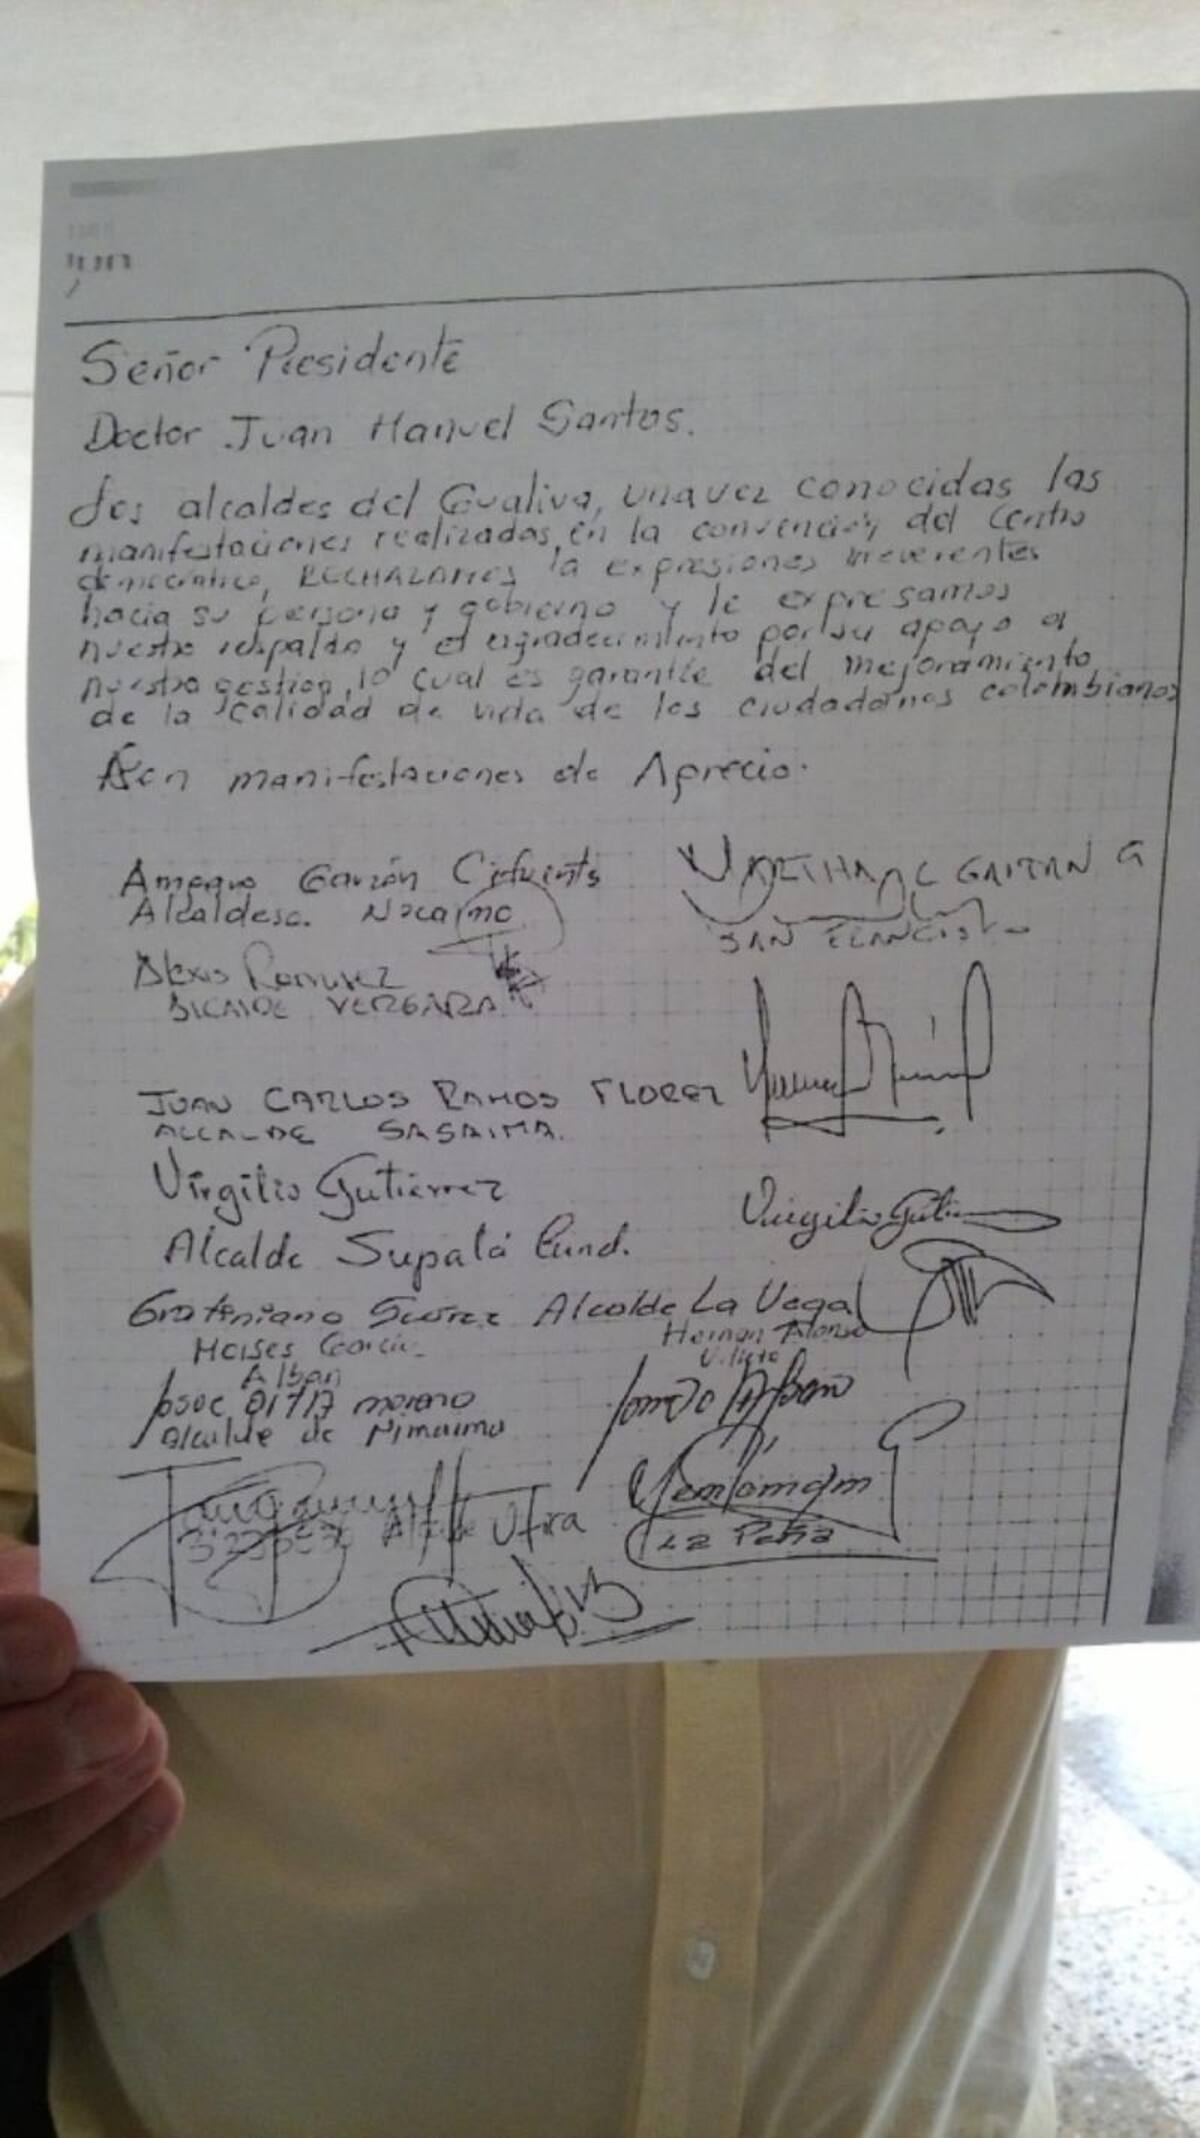 Señor Presidente
Doctor Juan Manuel Santos.
Los alcaldes del Gualiva, una vez conocidas las
manifestaciones realizadas, en la convención del Centro
democrático, RECHAZAMOS la expresiones irreverentes
hacia su persona y gobierno y le expresamos
nuestro respaldo y el agradecimiento por su apoyo a
nuestra gestion, lo cual es garantile del mejoramiento
de la calidad de vida de los ciudadanos colombianos
Son manifestaciones de Aprecio.
Amparo Garzón Cifuents
Alcaldesa. Nocaima
MARTHA C GAITAN G
SAN FRANCISCO
Alexis Ramirez
ALCALDE VERGARA
JUAN CARLOS RAMOS FLOREZ
ALCALDE SASAIMA.
Virgilio Gutierrez
Virgilio
Alcalde Supatá Cund.
Suárez Alcalde La Vega
Moises Garcia
Hernan Alonso
Villeta
Alban
Moreno
Alcalde de Nimaima
Utica
La Peña